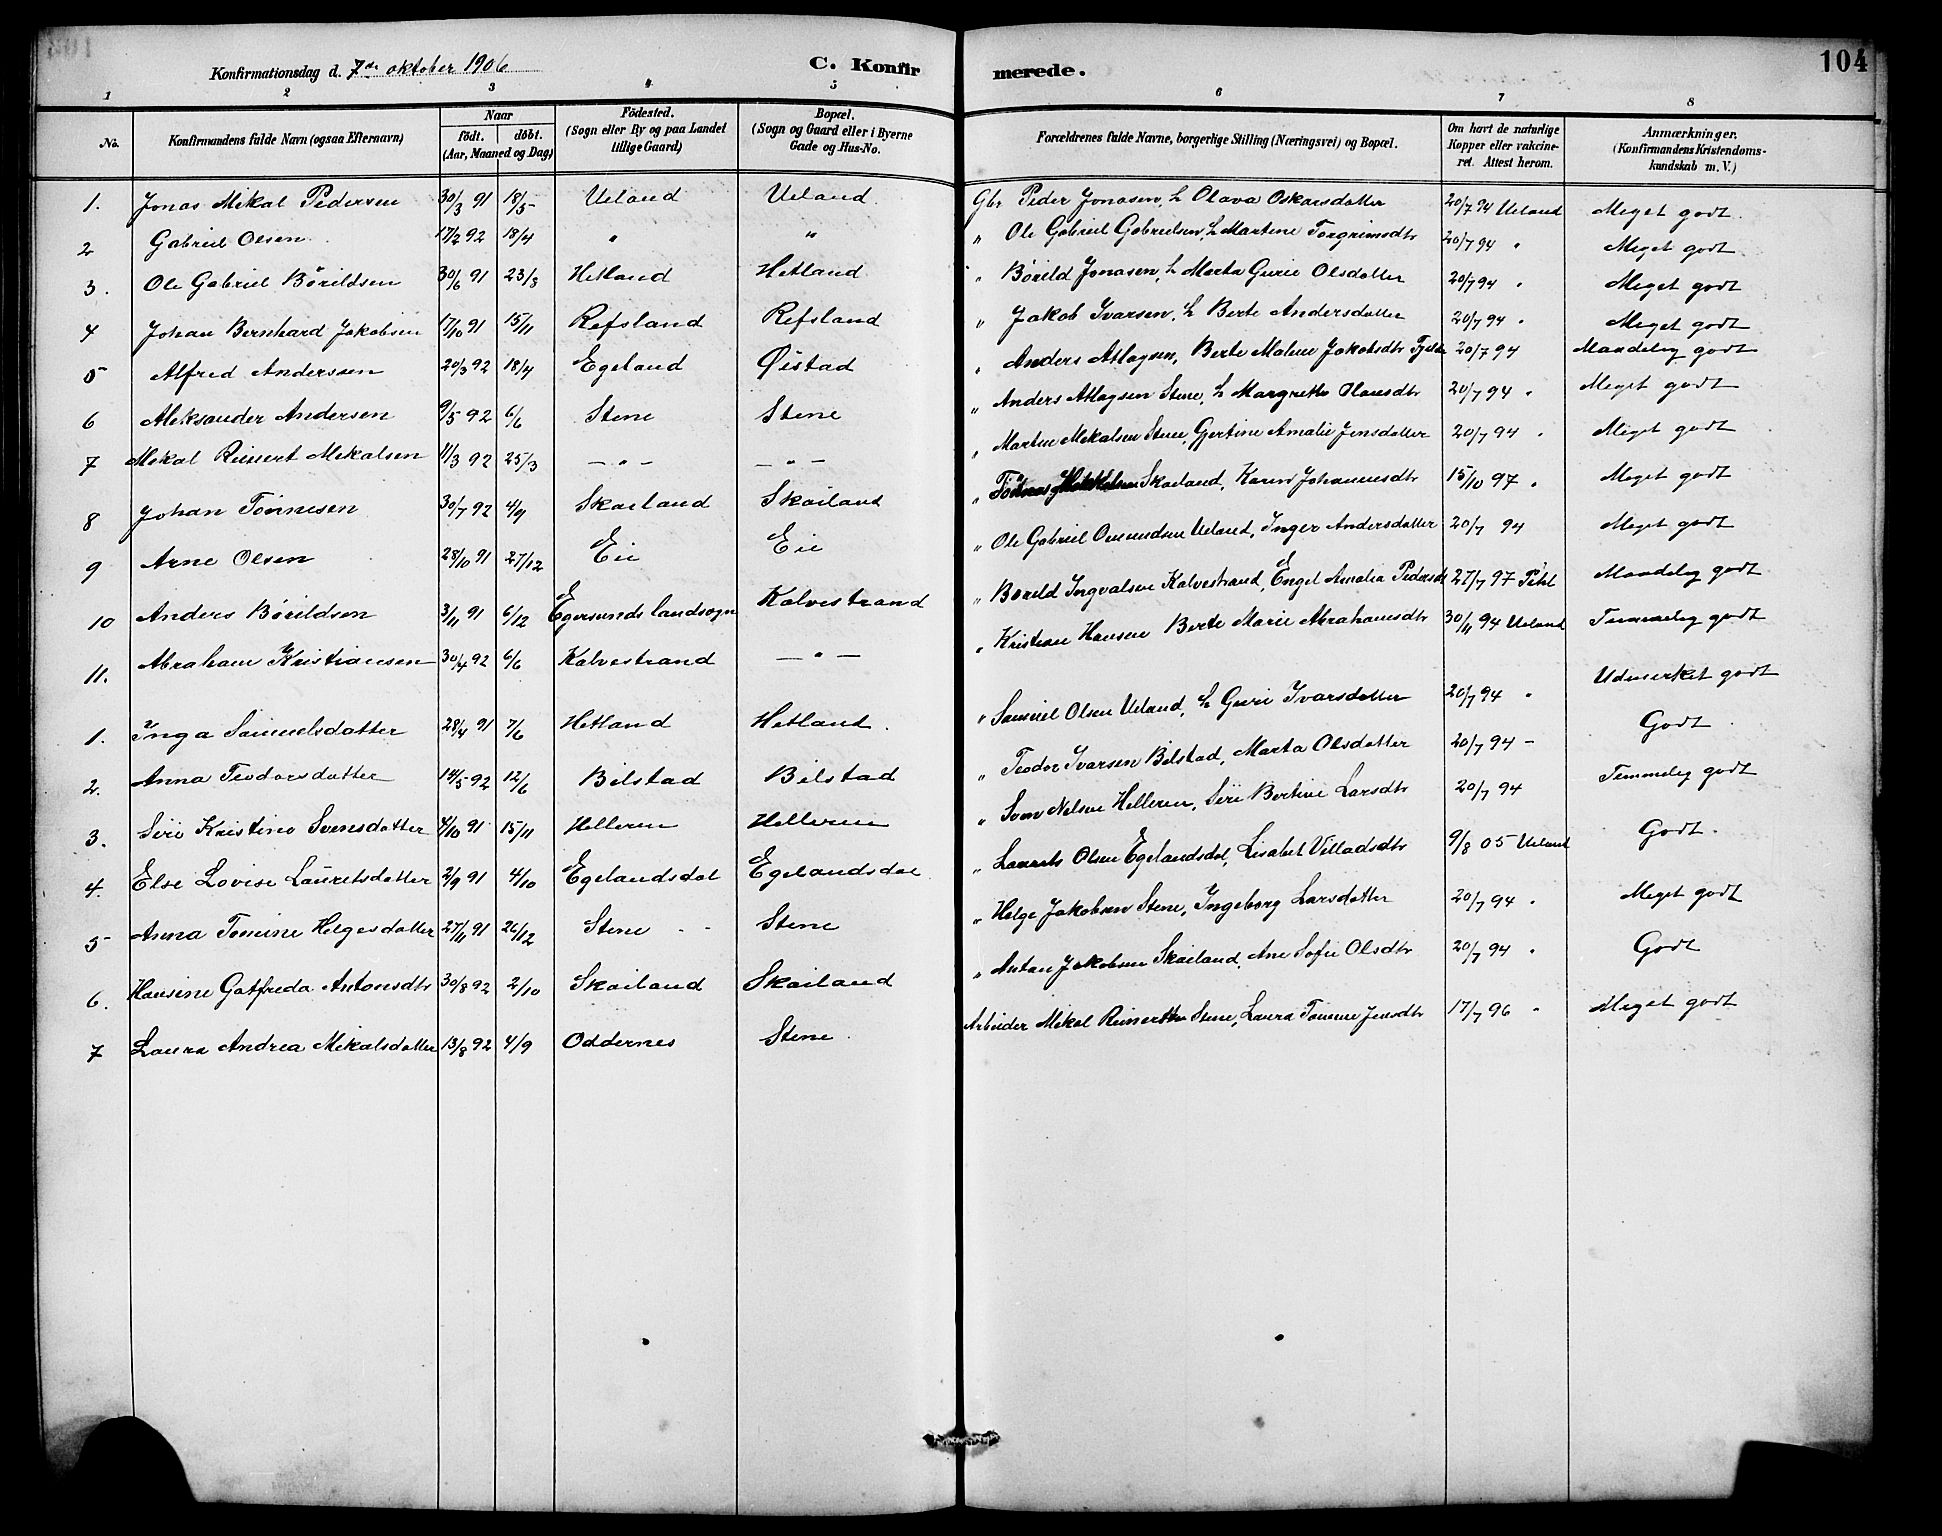 104
Konfirmationsdag d. 7de oktober 1906 C. Konfirmerede.
1 2 3 4 5 6 7 8
No. Konfirmandens fulde Navn (ogsaa Efternavn) Naar födt. döbt. (Aar, Maaned og Dag) Födested. (Sogn eller By og paa Landet tillige Gaard) Bopæl. (Sogn og Gaard eller i Byerne Gade og Hus-No. Forældrenes fulde Navne, borgerlige Stilling (Næringsvei) og Bopæl. Om havt de naturlige Kopper eller vakcineret. Attest herom. Anmærkninger. (Konfirmandens Kristendomskundskab m. V.)
1. Jonas Mikal Pedersen 30/3 91 18/5 Ueland Ueland. Gbr Peder Jonasen, h Olava Oskarsdatter 20/7 94 Ueland Meget godt
2 Gabriel Olsen 17/2 92 18/4 " " " Ole Gabriel Gabrielsen, h Martine Torgrimsdtr 20/7 94 " Meget godt
3. Ole Gabriel Börildsen 30/6 91 23/8 Hetland Hetland " Börild Jonasen, h Marta Gurie Olsdatter 20/7 94 " Meget godt
4 Johan Bernhard Jakobsen 17/10 91 15/11 Refsland Refsland " Jakob Ivarsen, h Berte Andersdatter 20/7 94 " Meget godt
5 Alfred Anderssen 20/3 92 18/4 Egeland Øistad " Anders Atlagsen, Berte Malene Jakobsdtr 20/7 94 Maadelig godt
6 Aleksander Andersen 9/5 92 6/6 Stene Stene " Anders Atlagsen Stene, h Margrethe Olausdtr 20/7 94 " Meget godt
7 Mikal Reinert Mikalsen 11/3 92 25/3 — " — — " — " Martin Mikalsen Stene, Gjertine Amalie Jensdatter 20/7 94 " Meget godt
8 Johan Tönnesen 30/7 92 4/9 Skaeland Skailand " Tönnes Skaeland, Karen Johannesdtr 15/10 97 " Meget godt
9 Arne Olsen 28/10 91 27/12 Eie Eie " Ole Gabriel Omundsen Ueland, Inger Andersdatter 20/7 94 Meget godt
10 Anders Börildsen 3/11 91 6/12 Egersunds landsogn Kalvestrand " Börild Ingvalsen Kalvestrand, Engel Amalia Pedersdtr 27/7 97 Maadelig godt
11. Abraham Kristiansen 30/4 92 6/6 Kalvestrand — " — " Kristian Hansen Berte Marie Abrahamsdtr 30/11 94 Ueland Temmelig godt
1. Inga Samuelsdatter 28/4 91 7/6 Hetland Hetland. " Samuel Olsen Ueland, h Guri Ivarsdatter 20/7 94 " Udmerket godt
2. Anna Teodorsdatter 14/5 92 12/6 Bilstad Bilstad " Teodor Ivarsen Bilstad, Marta Olsdatter 20/7 94 - Godt
3. Siri Kristine Svensdatter 4/10 91 15/11 Helleren Helleren " Sven Nelsen Helleren, Siri Bertine Larsdtr 20/7 94 Temmelig godt
4. Else Lovise Lauretsdatter 2/9 91 4/10 Egelandsdal Egelandsdal " Laurets Olsen Egelandsdal, Lisabet Villadsdtr 9/8 05 Ueland Godt.
5 Anna Tomine Helgesdatter 27/11 91 26/12 Stene Stene " Helge Jakobsen Stene, Ingeborg Larsdatter 20/7 94 " Meget godt
6. Hansine Gatfreda Antonsdtr 30/8 92 2/10 Skailand Skailand " Antan Jakobsen Skaeland, Ane Sofie Olsdtr 20/7 94 " Godt
7 Laura Andrea Mikalsdatter 13/8 92 4/9 Oddernes Stene Arbeider Mikal Reinertsen Stene, Laura Tomine Jensdtr 17/7 96 " Meget godt